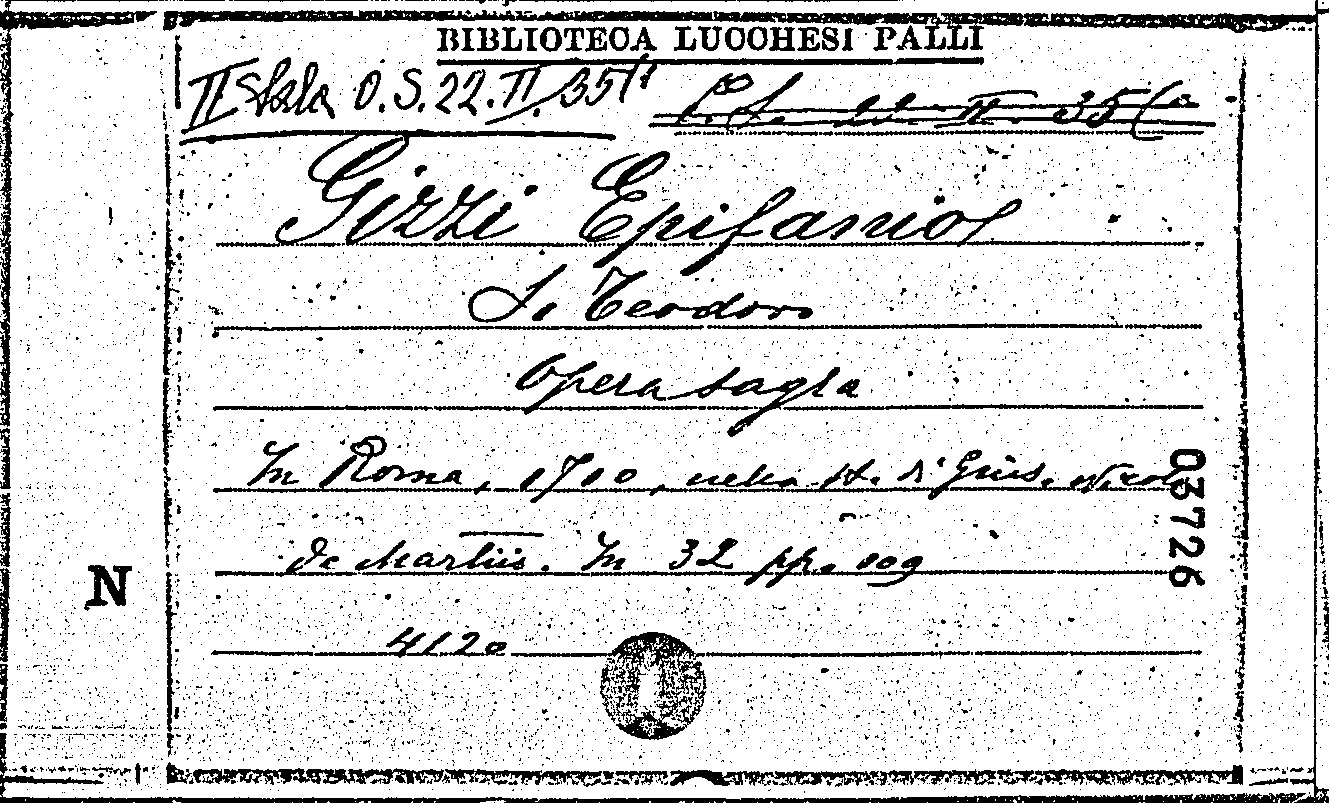 BIBLIOTECA LUCCHESI PALLI
II Sala O.S. 22. II. 35/1
Gizzi Epifanio
S. Teodoro
Opera sagra
In Roma, 1710, nella st. di Gius. Nicola
de Martiis. In 32 pp. 109
4120
N
03726